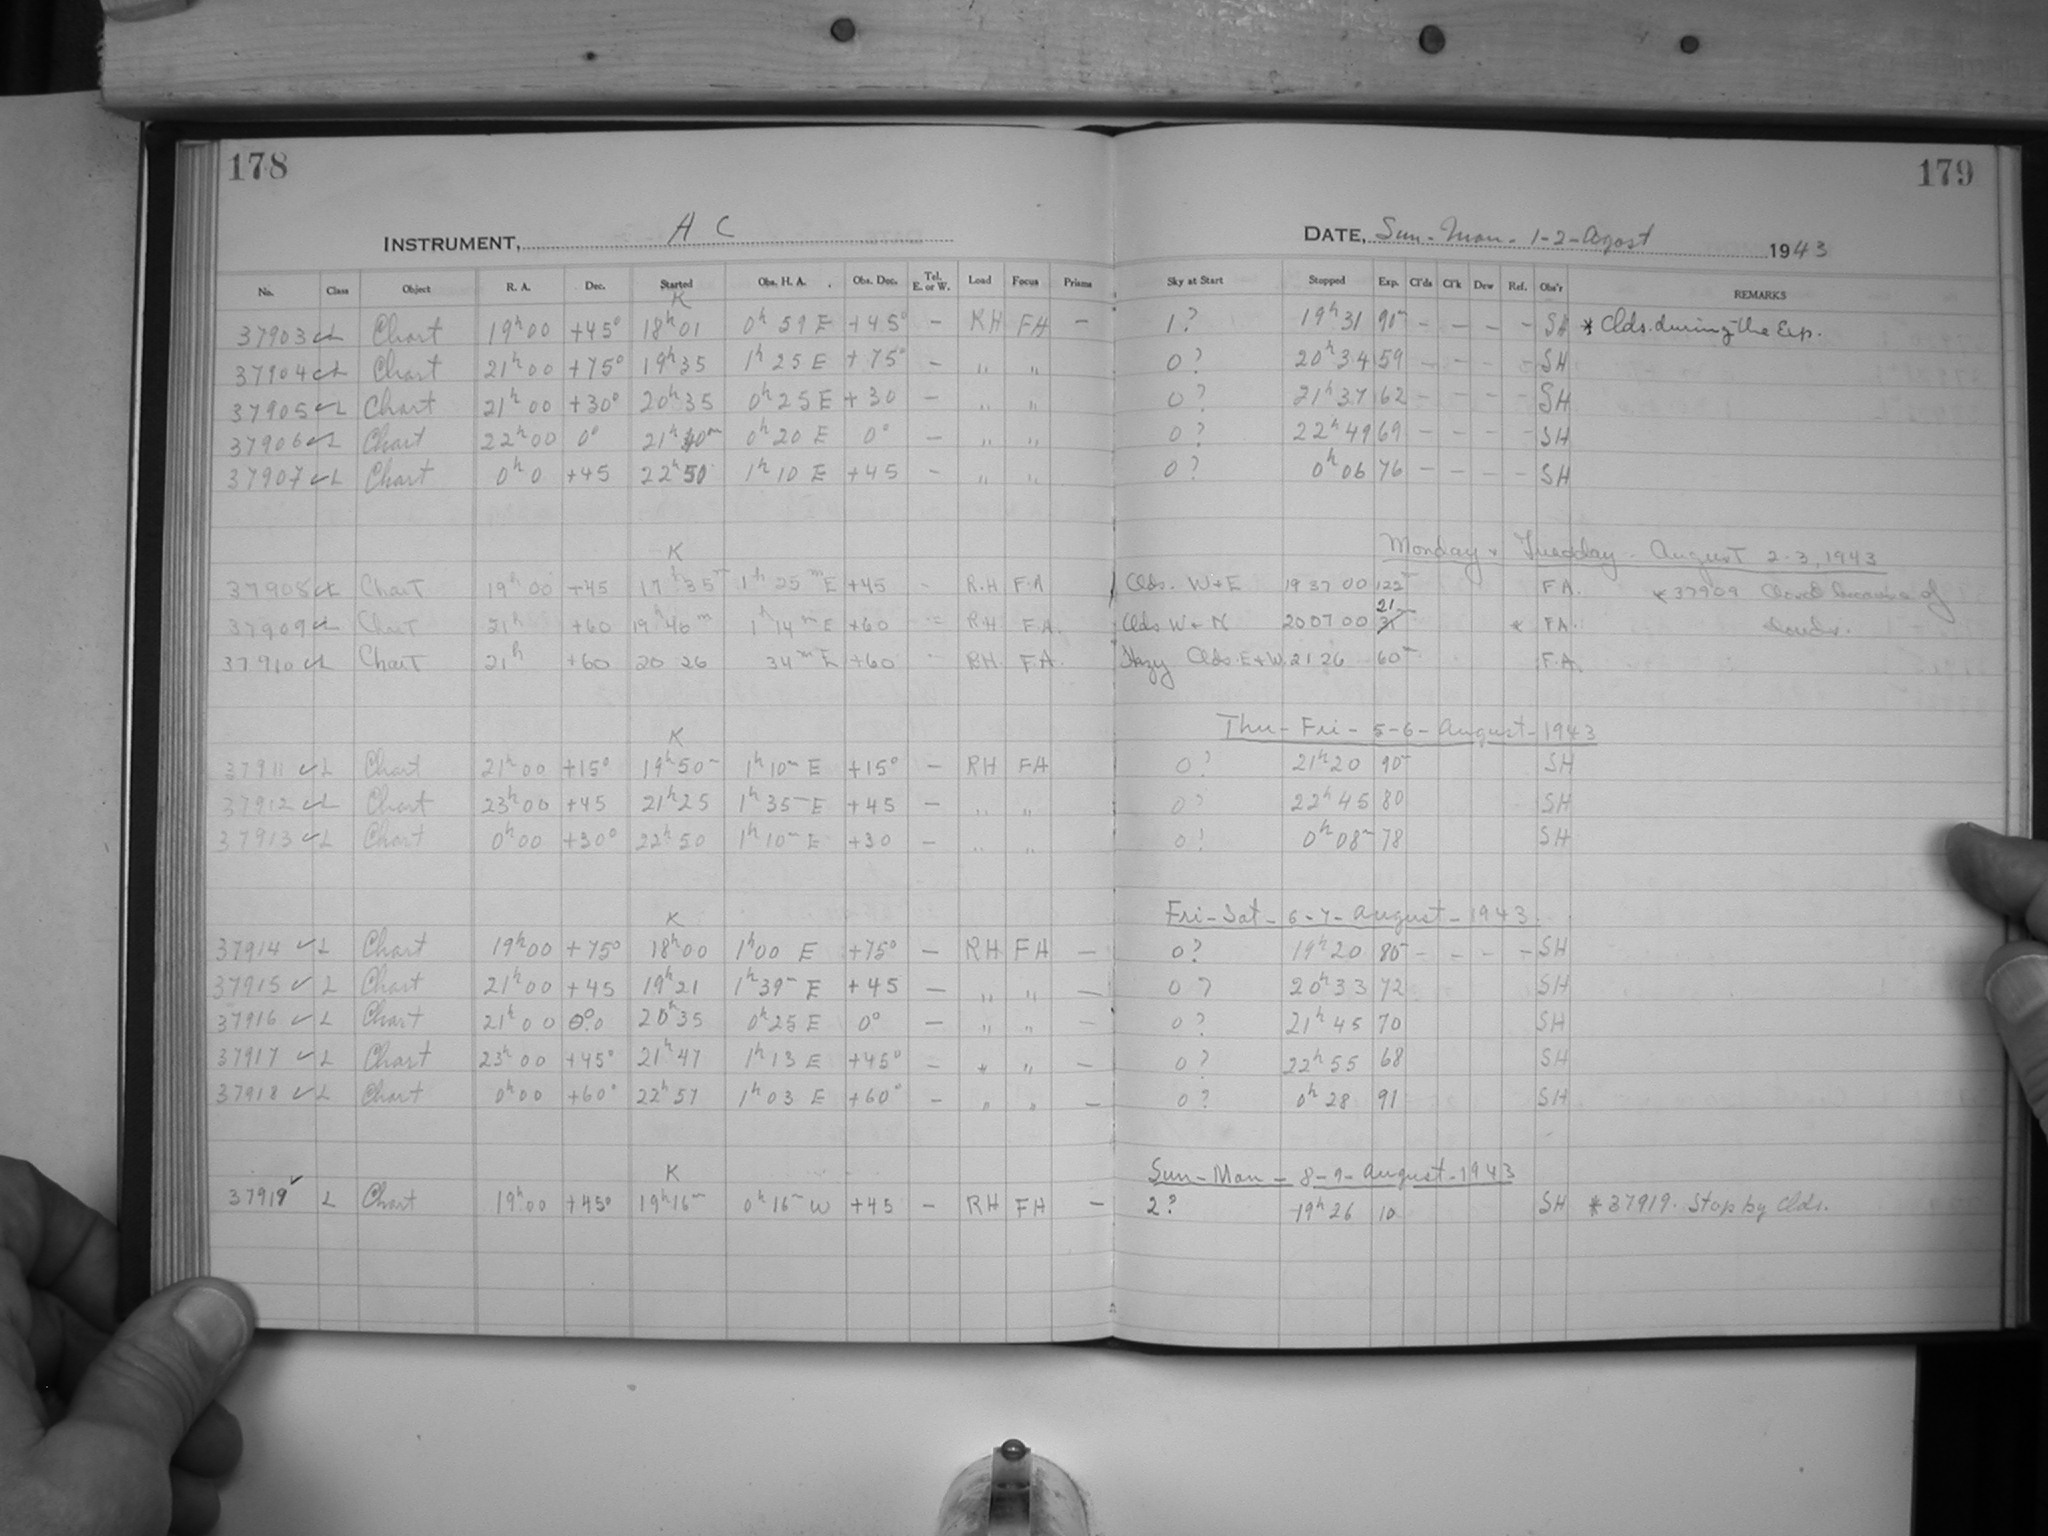 178 179
INSTRUMENT, A C DATE, Sun - Mon - 1-2 - Agost 1943
No. Class Object R. A. Dec. Started Obs. H. A. Obs. Dec. Tel. E. or W. Load Focus Prisms Sky at Start Stopped Exp. Cl'ds Cl'k Dew Ref. Obs'r REMARKS
K
37903 ✓ L Chart 19h00 +45° 18h01 0h 59 E +45° - RH FH - 1? 19h 31 90m - - - - SH * Clds. during the Exp.
37904 ✓ L Chart 21h00 +75° 19h35 1h 25 E +75° - " " 0? 20h34 59 - - - - SH
37905 ✓ L Chart 21h00 +30° 20h35 0h25 E +30 - " " 0? 21h37 62 - - - - SH
37906 ✓ L Chart 22h00 0° 21h40m 0h20 E 0° - " " 0? 22h49 69 - - - - SH
37907 ✓ L Chart 0h 0 +45 22h50 1h10 E +45 - " " 0? 0h06 76 - - - - SH
K Monday & Tuesday - August 2-3, 1943
37908 ✓ L Chart 19h00 +45 17h35m 1h 25m E +45 - R.H F.A Clds. W+E 19 37 00 122m F A. * 37909 Closed because of
37909 ✓ L Chart 21h +60 19h 46m 1h 14m E +60 - RH F A. Clds W + N 20 07 00 21 31 * FA. clouds.
37910 ✓ L Chart 21h +60 20 26 34m E +60 - RH. F.A. Hazy Clds. E+W. 21 26 60m F.A.
K Thu - Fri - 5-6 - August - 1943
37911 ✓ L Chart 21h00 +15° 19h50m 1h10m E +15° - RH FH 0? 21h20 90m SH
37912 ✓ L Chart 23h00 +45 21h25 1h35m E +45 - " " 0? 22h45 80 SH
37913 ✓ L Chart 0h00 +30° 22h50 1h10m E +30 - " " 0? 0h08m 78 SH
K Fri - Sat - 6-7 - August - 1943.
37914 ✓ L Chart 19h00 +75° 18h00 1h00 E +75° - RH FH - 0? 19h20 80m - - - - SH
37915 ✓ L Chart 21h00 +45 19h21 1h39m E +45 - " " - 0? 20h33 72 SH
37916 ✓ L Chart 21h00 0°.0 20h35 0h25 E 0° - " " - 0? 21h45 70 SH
37917 ✓ L Chart 23h00 +45° 21h47 1h13 E +45° - " " - 0? 22h55 68 SH
37918 ✓ L Chart 0h00 +60° 22h57 1h03 E +60° - " " - 0? 0h28 91 SH
K Sun - Mon - 8-9 - August - 1943
37919 ✓ L Chart 19h00 +45° 19h16m 0h16m W +45 - RH FH - 2? 19h26 10 SH * 37919. Stop by Clds.